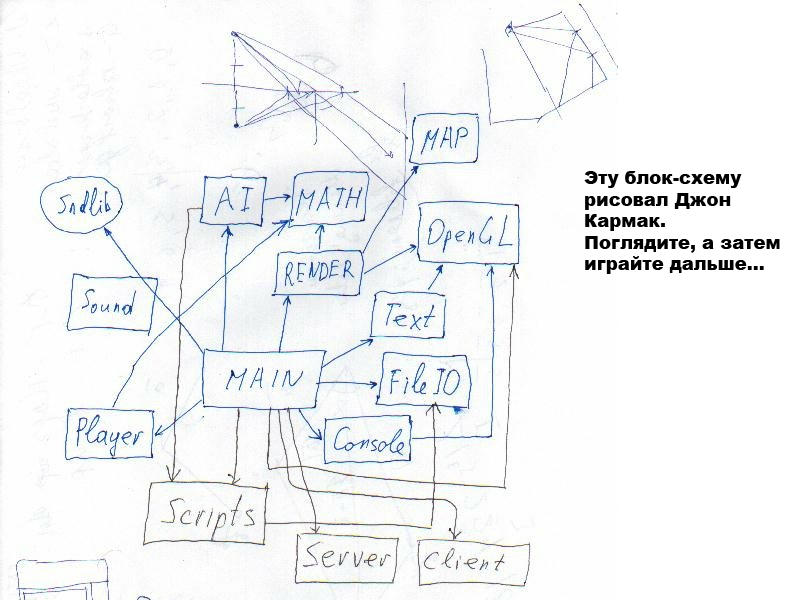 MAP
Sndlib
AI
MATH
OpenGL
RENDER
Sound
Text
MAIN
FileIO
Player
Console
Scripts
Server
Client
Эту блок-схему
рисовал Джон
Кармак.
Поглядите, а затем
играйте дальше...